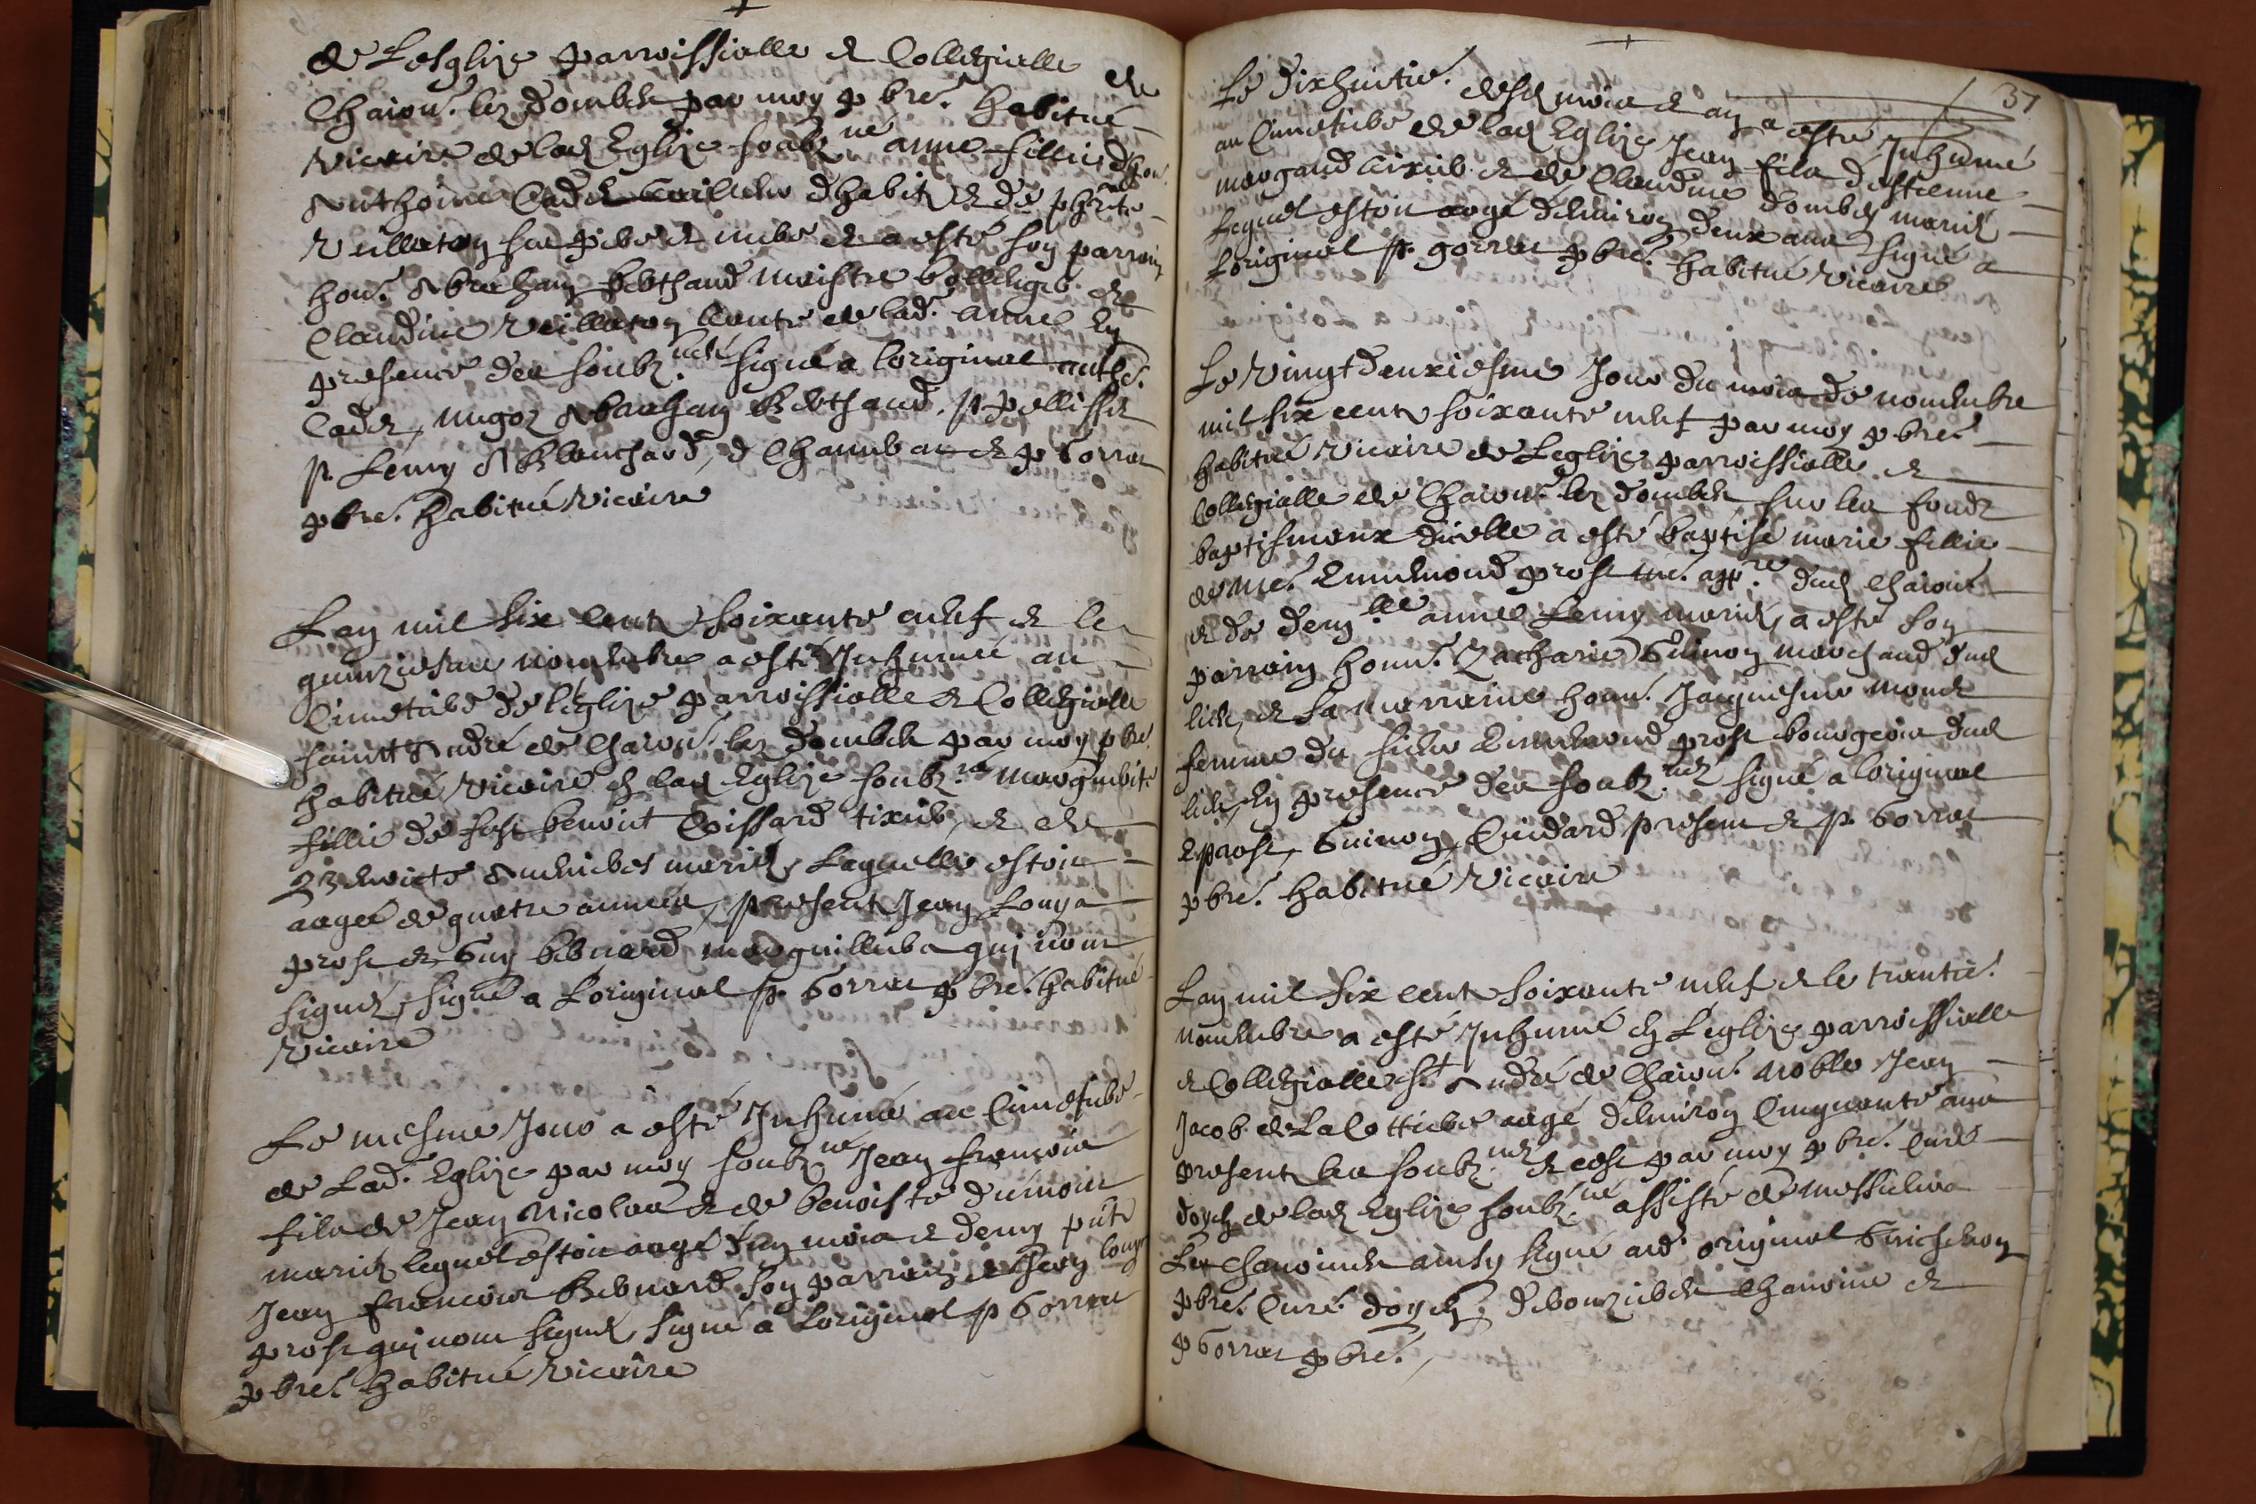 de Lesglize parroissialle et Collegialle de
Chaion.t lez dombes par moy pbre.
habitué
vicaire de lad Eglize soubz.né anne fillie d'hon.
Anthoine Cadet d'habit et de
Veillaton ses pere et mere et a esté son parrain
hon.
Abraham Berthaud maistre et
Claudine Veillaton tante de lad. anne En
presence des soubz.nés signé a loriginal anth.
Cadet, Abraham Berthaud, p. pellissit
p. Lemy Blanchard, et p Gorrat
pbre. habitué vicaire
Lan mil six cent soixante neuf et le
quinziesme novembre a esté Inhumé au
Cimetiere de leglize parroissialle et Collegialle
saint Andre de Chaion.t lez dombes par moy pbre.
habitué vicaire en lad Eglize soubz.né marguerite
fillie de feu benoist Coissard tixier, et de
mariés, Laquelle estoit
aagée de quatre années, present Jean Longa
prost et Guy bernard marguilliers qui nont
signés, signé a Loriginal p. Gorrat pbre. habitué
vicaire
Le mesme Jour a esté Inhumé au Cimetiere
de Lad. Eglize par moy soubz.né Jean francois
fils de Jean Nicolas et de benoiste
mariés lequel estoit aagé d'un mois et demy pnt
Jean francois Bernard son parrain et Jean longa
prost qui nont signés, signé a Loriginal p Gorrat
pbre. habitué vicaire
37
Le dixhuitie. desd mois et an a esté Inhumé
au Cimetiere de lad Eglize Jean fils d'estienne
morgand tixier et de Claudine dombes mariés
Lequel estoit aagé denviron deux ans signé a
Loriginal p. gorrat pbre. habitué vicaire
Le vingt deuxiesme Jour du mois de novembre
mil six cent soixante neuf par moy pbre.
habitué vicaire de Leglize parroissialle et
Collegialle de Chaion.t lez dombes sur les fondz
baptismaux dicelle a esté baptisé marie fillie
de Me. Ennemond prost me. app.re dud Chaion.t
et de dem.lle anne Lemy mariés, a esté son
parrain honn. Zacharie Guinon marchand dud
lieu, et sa marraine honn. Jacquesme
femme du sieur Ennemond prost bourgeois dud
lieu, En presence des soubz.nés signé a loriginal
E prost, Guinon, Cuidard present et p. Gorrat
pbre. habitué vicaire
Lan mil six cent soixante neuf et le trantie.
novembre a esté Inhumé en Leglize parroissialle
et Collegialle St Andre de Chaion.t noble Jean
Jacob de La Cottiere aagé denviron Cinquante ans
present les soubz.nés et cest par moy pbre. Curé
doyen de lad Eglize soubz.né assisté de messieurs
Les Chanoines ainsy signé aud. original
pbre. Curé doyen, chanoine et
p Gorrat pbre.